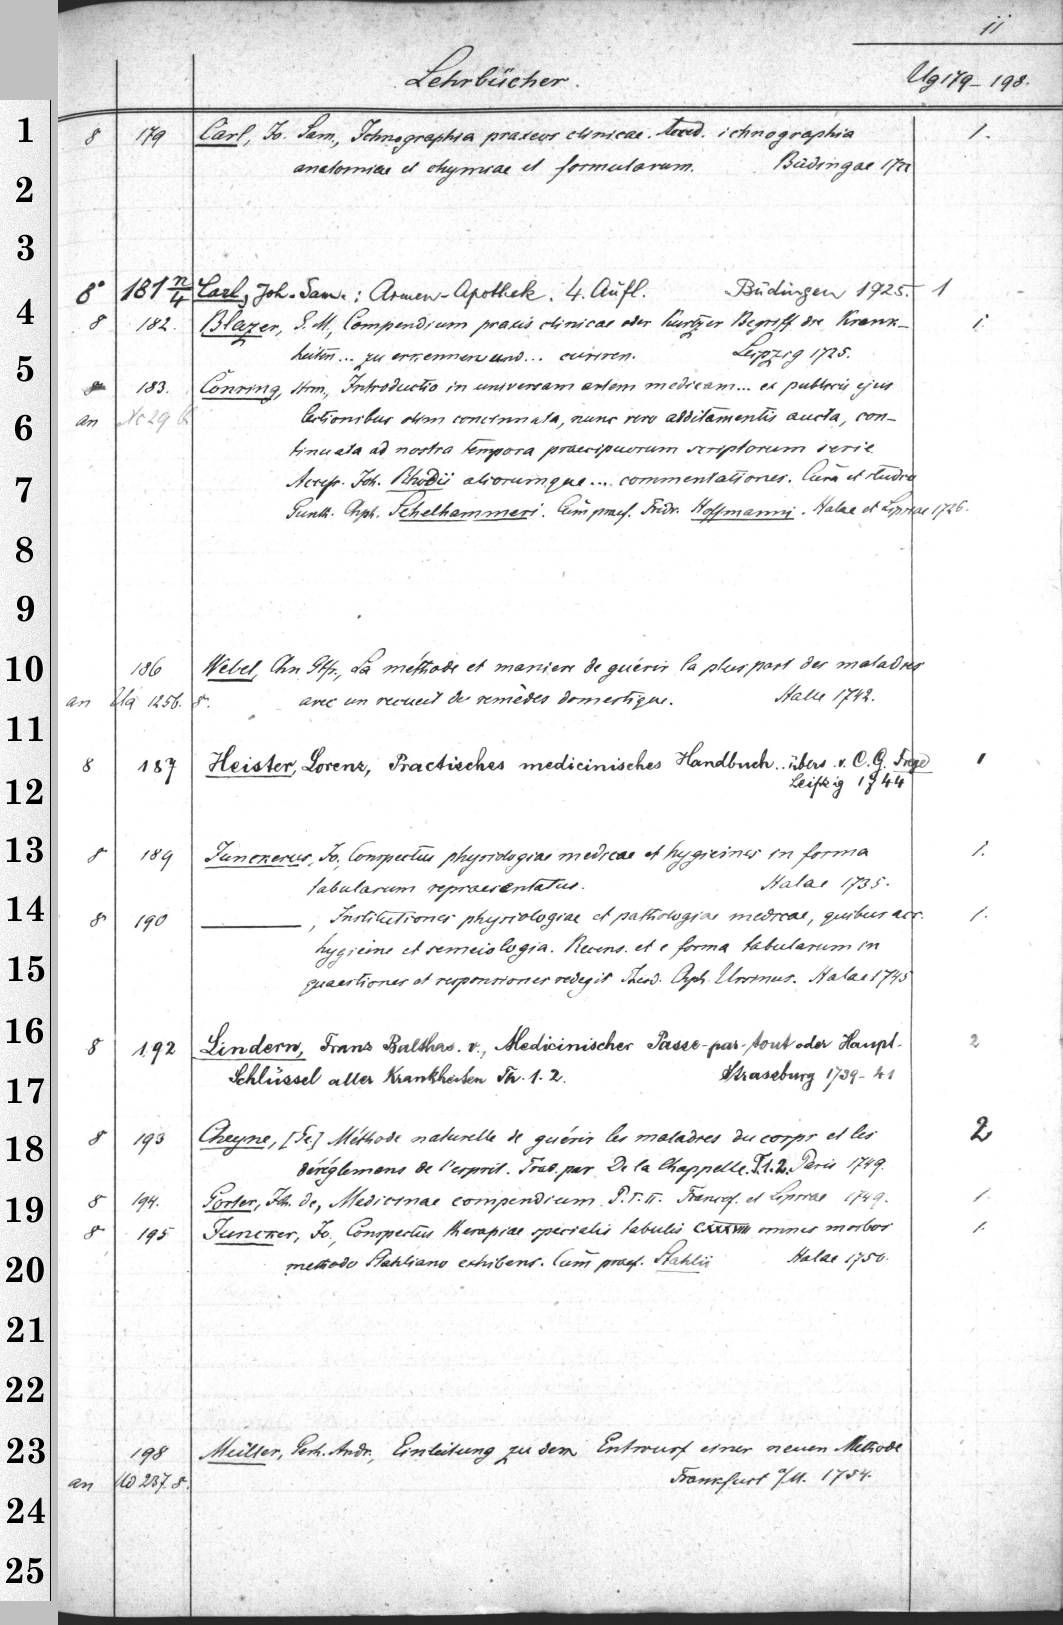 ii
Lehrbücher. Ug 179–198.
1
8 179 Carl, Jo. Sam., Ichnographia praxeos clinicae. ichnographia 1.
anatomiae et chymiae et formularum. Büdingae 1722
2
3
8° 181 n/4 Carl, Joh. Sam.: Armen-Apothek. 4. Aufl. Büdingen 1925. 1
4
8 182. Blazer, S. M., Compendium praxis clinicae oder Kurtzer Begriff die Krank– 1.
heiten... zu erkennen und... curiren. Leipzig 1725.
5
8 183. Conring, Hrm., Introductio in universam artem medicam... ex publicis ejus
an Nc 29 lectionibus olim concinnata, nunc vero additamentis aucta, con–
6
tinuata ad nostra tempora praecipuorum scriptorum serie
Access. Joh. Rhodii aliorumque... commentationes. Cura et studio
7
Gunth. Chph. Schelhammeri. Cum praef. Fridr. Hoffmanni. Halae et Lipsiae 1726.
8
9
10
186 Webel, Chn. Gtfr., La méthode et maniere de guérir la plus part des maladies
an Ua 1256. 8. avec un recueil de remèdes domestique. Halle 1742.
11
8 187 Heister, Lorenz, Practisches medicinisches Handbuch.. übers. v. C. G. Frege 1
Leipzig 1744
12
13
8 189 Junckerus, Jo., Conspectus physiologiae medicae et hygieines in forma 1.
tabularum repraesentatus. Halae 1735.
14
8 190 ———, Institutiones physiologiae et pathologiae medicae, quibus acc. 1.
hygieine et semeiologia. Recens. et e forma tabularum in
15
quaestiones et responsiones redegit Theod. Chph. Ursinus. Halae 1745
16
8 192 Lindern, Franz Balthas. v., Medicinischer Passe-par-tout oder Haupt- 2
Schlüssel aller Krankheiten Th. 1. 2. Strassburg 1739–41
17
18
8 193 Cheyne, [Ge.] Méthode naturelle de guérir les maladies du corps et les 2
déréglemens de l'esprit. Trad. par De la Chappelle. T. 1. 2. Paris 1749.
19
8 194. Gorter, Joh. de, Medicinae compendium. P. I. II. Francof. et Lipsiae 1749. 1.
8 195 Juncker, Jo., Conspectus therapiae specialis tabulis CXXXVIII omnes morbos 1.
20
methodo Stahliana exhibens. Cum praef. Stahlii Halae 1750.
21
22
23
198 Müller, Gerh. Andr., Einleitung zu dem Entwurf einer neuen Methode
an Ud 237. 8. Frankfurt a/M. 1754.
24
25